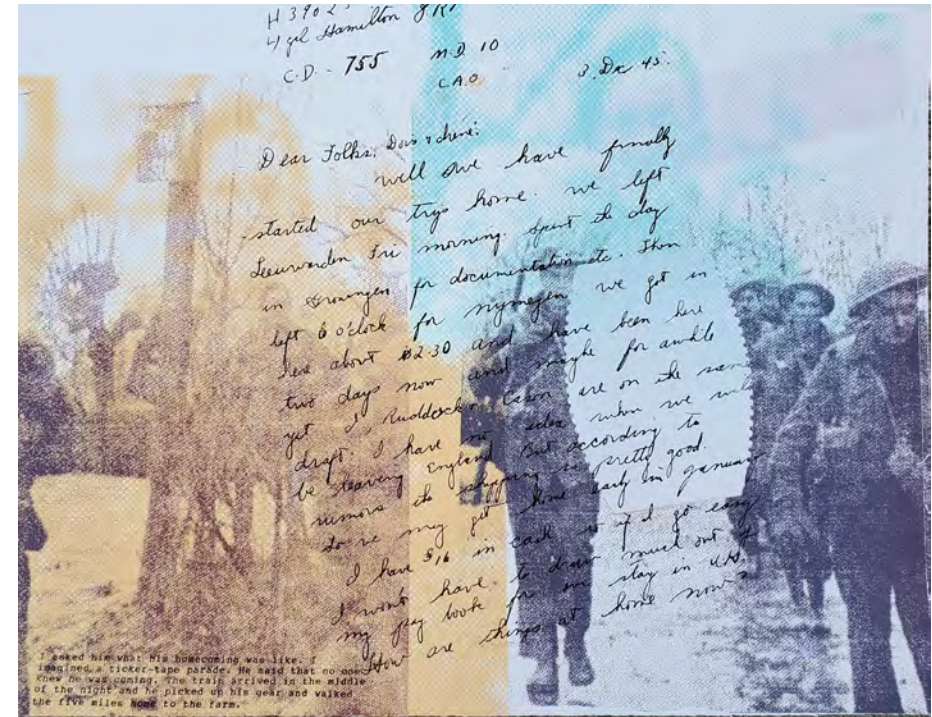 H 3902
4 gd Hamilton
C.D. - 755 M.D. 10
C.A.O. 3 De 45.
Dear Folks; Dois & chene:
Well we have finally
started our trys home. We left
Leeuwarden Fri morning. Spent the day
in Groningen for documentation etc. Then
left 6 o'clock for nymegen we got in
here about 2.30 and have been here
two days now and maybe for awhile
yet I, Ruddock & Cason are on the same
draft. I have no idea when we will
be leaving England But according to
rumors the shipping is pretty good.
So we may get home early in January
I have $16 in cash so if I go easy
I wont have to draw much out of
my pay book for our stay in
How are things at home now?
I asked him what his homecoming was like. I
imagined a ticker-tape parade. He said that no one
knew he was coming. The train arrived in the middle
of the night and he picked up his gear and walked
the five miles home to the farm.